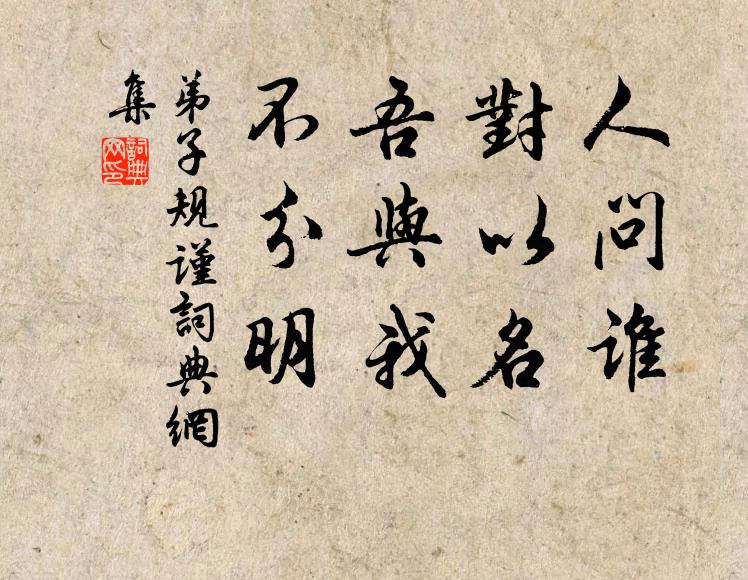 人問誰
對以名
吾與我
不分明
弟子規謹詞典網
集
詞典網印